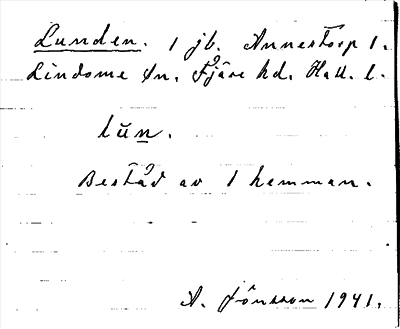 Lunden. 1 jb. Annestorp 1.
Lindome sn. Fjäre hd. Hall. l.
lŭn.
Bestod av 1 hemman.
A. Jönsson 1941.